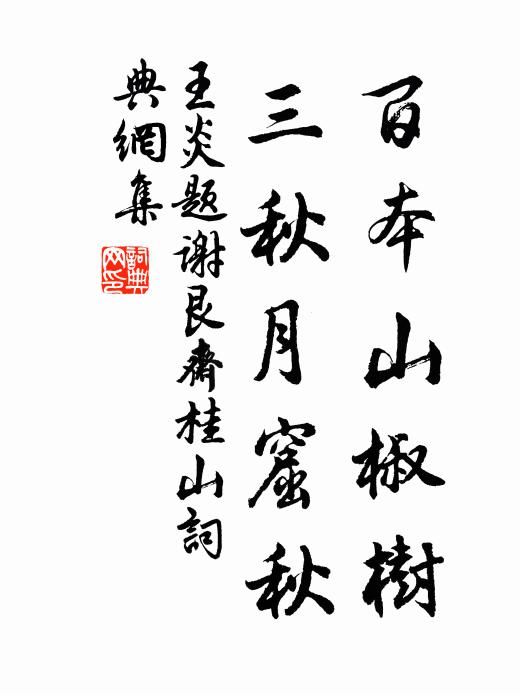 百本山椒樹
三秋月窟秋
王炎题谢艮齋桂山詞
典網集
詞典
网印